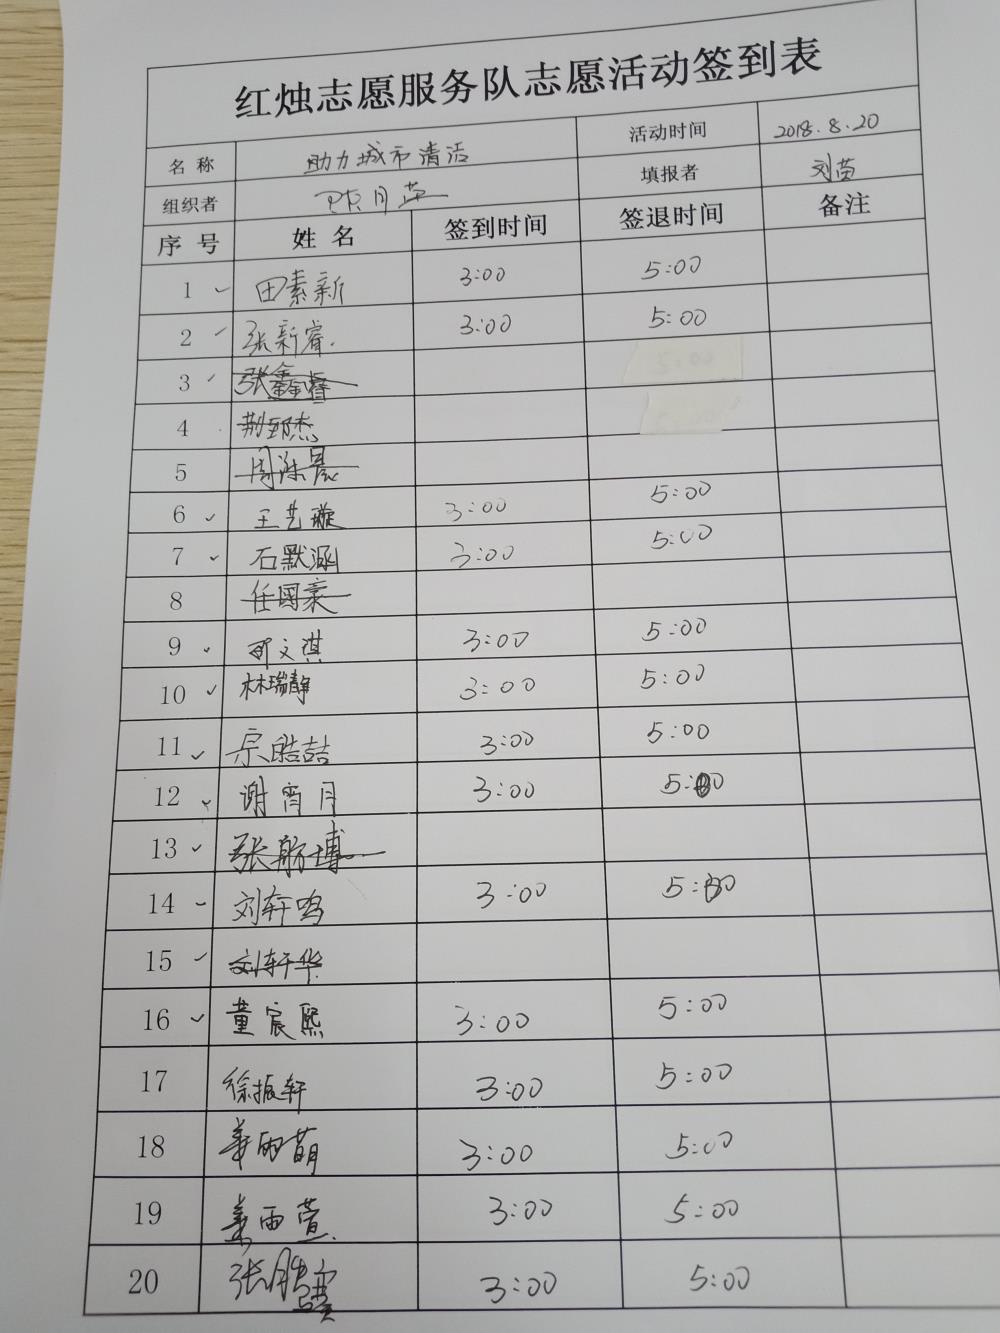 红烛志愿服务队志愿活动签到表
名 称 助力城市清洁 活动时间 2018.8.20
组织者 陈月英 填报者 刘苗
序 号 姓 名 签到时间 签退时间 备注
1 田素新 3:00 5:00
2 张新睿 3:00 5:00
3 张鑫睿
4 荆郅杰
5
6 王艺璇 3:00 5:00
7 石默涵 3:00 5:00
8 任国豪
9 文淇 3:00 5:00
10 林瑞静 3:00 5:00
11 宗皓喆 3:00 5:00
12 谢宵月 3:00 5:00
13 张舫博
14 刘轩鸣 3:00 5:00
15 刘轩华
16 董宸熙 3:00 5:00
17 徐振轩 3:00 5:00
18 姜雨萌 3:00 5:00
19 姜雨萱 3:00 5:00
20 张胜 3:00 5:00